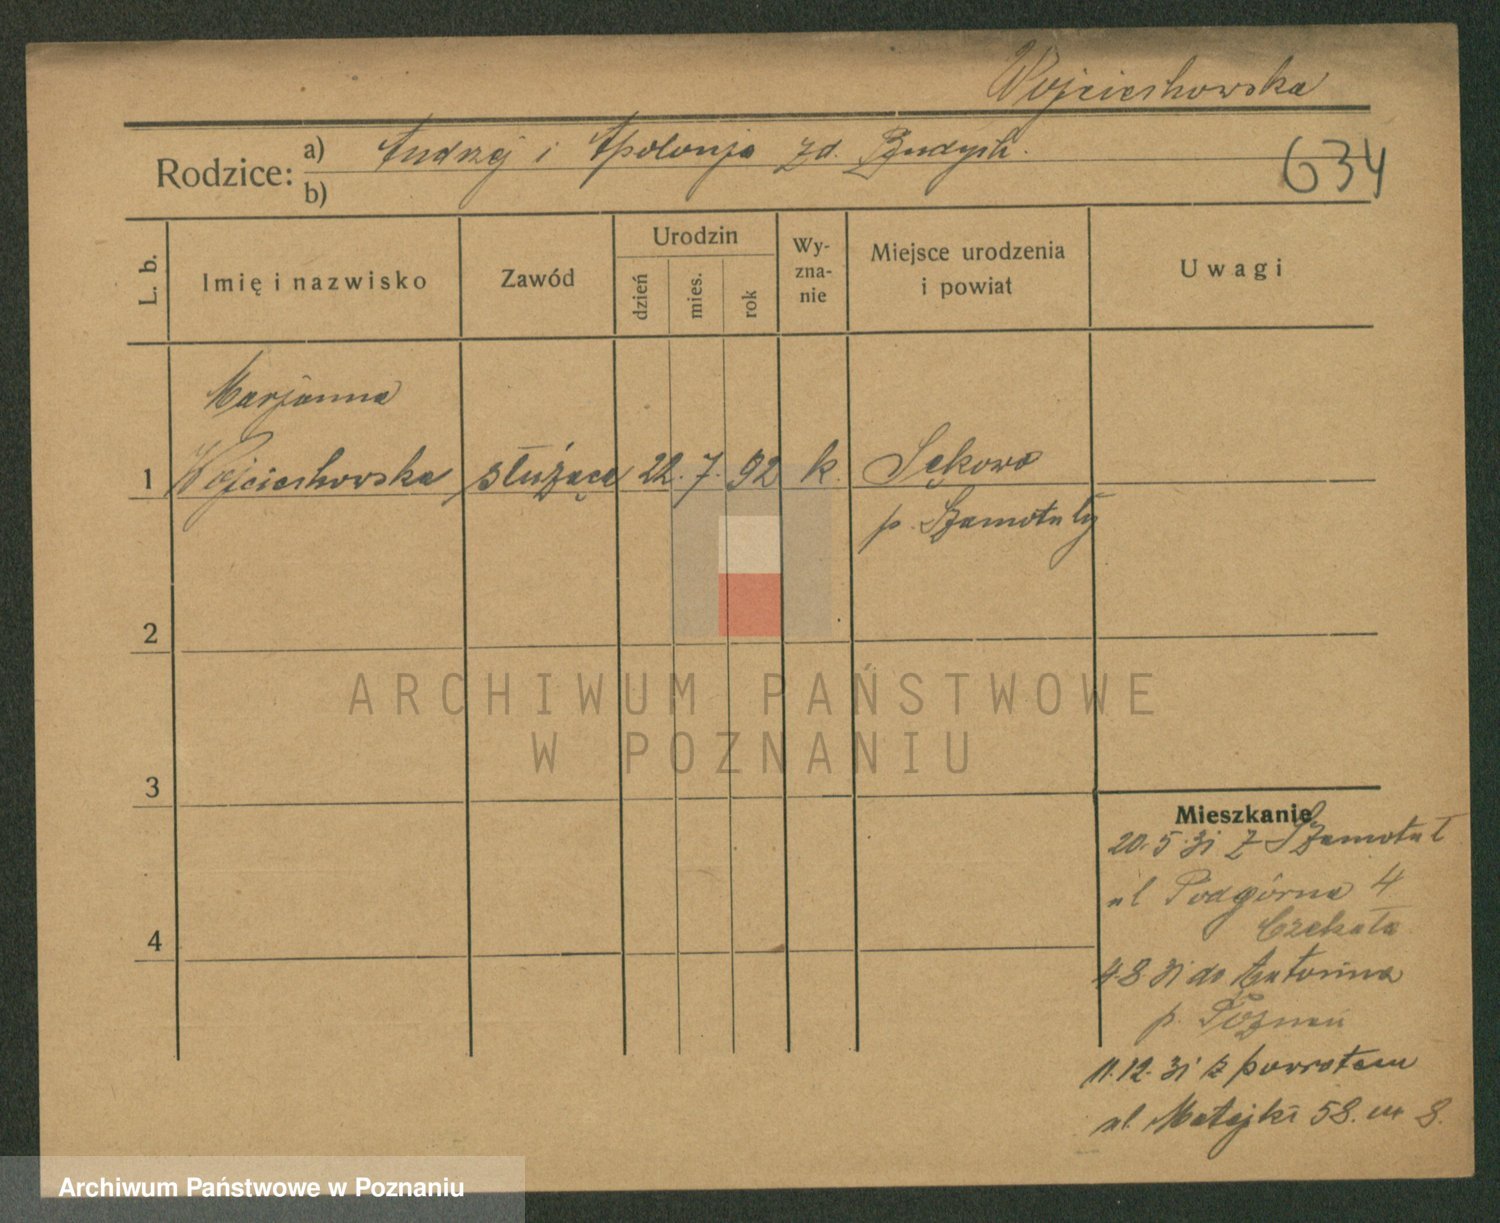 Wojciechowska
Rodzice: a) Andrzej i Apolonja zd.
b)
634
L. b.
Imię i nazwisko
Zawód
Urodzin
dzień
mies.
rok
Wy-
zna-
nie
Miejsce urodzenia
i powiat
Uwagi
Marjanna
1 Wojciechowska służąca 22. 7. 92 k. Sękowo
p. Szamotuły
2
3
4
Mieszkanie
20.5.31 z Szamotuł
ul Podgórna 4
Czekała
4.8.31 do Antonina
p. Poznań
11.12.31 z powrotem
ul. Matejki 58. m 8.
ARCHIWUM PAŃSTWOWE
W POZNANIU
Archiwum Państwowe w Poznaniu